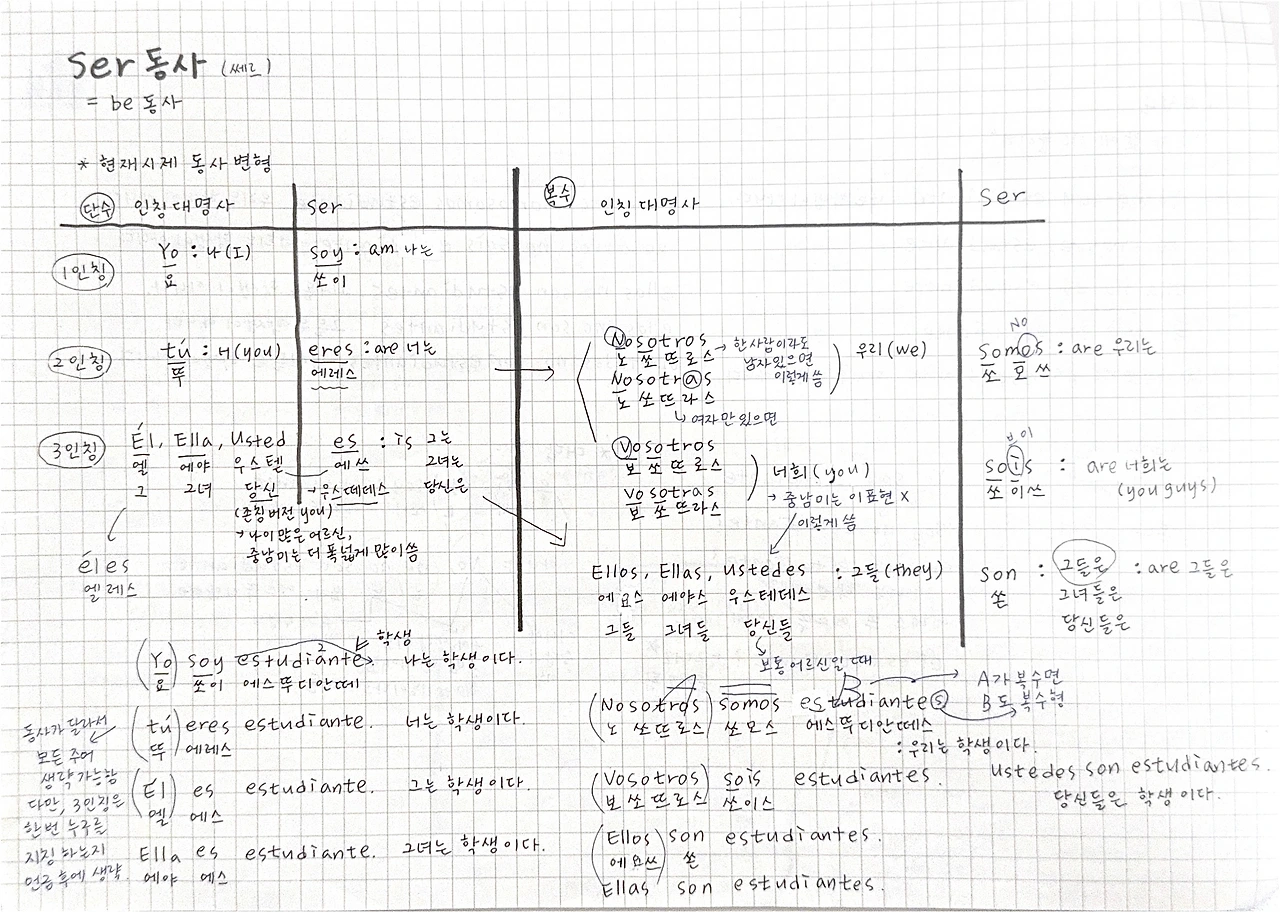 ser 동사 (쎄르)
= be 동사
* 현재시제 동사 변형
단수 인칭대명사 ser
복수 인칭대명사 ser
1인칭
Yo : 나(I)
요
soy : am 나는
쏘이
2인칭
tú : 너(you)
뚜
eres : are 너는
에레스
3인칭
Él, Ella, Usted
엘 에야 우스텓
그 그녀 당신
(존칭버전 you)
→ 나이많은 어르신,
중남미는 더 폭넓게 많이씀
es : is 그는
에쓰 그녀는
→ 우스떼데스 당신은
él es
엘레스
Nosotros
노 쏘뜨로스
→ 한사람이라도
남자있으면
이렇게 씀
Nosotras
노 쏘뜨라스
↳ 여자만있으면
우리(we)
NO
somos : are 우리는
쏘 모 쓰
Vosotros
보 쏘뜨로스
vosotras
보 쏘뜨라스
너희(you)
→ 중남미는 이표현 X
이렇게 씀
sois : are 너희는
쏘 이쓰 (you guys)
Ellos, Ellas, ustedes : 그들(they)
에요스 에야스 우스테데스
그들 그녀들 당신들
보통 어르신일 때
son : 그들은 : are 그들은
쏜 그녀들은
당신들은
학생
(Yo) soy estudiante. 나는 학생이다.
요 쏘이 에스뚜디안떼
(tú) eres estudiante. 너는 학생이다.
뚜 에레스
(Él) es estudiante. 그는 학생이다.
엘 에스
Ella es estudiante. 그녀는 학생이다.
에야 에스
동사가 달라서
모든 주어
생략 가능함
다만, 3인칭은
한번 누구를
지칭 하는지
언급 후에 생략.
A B
(Nosotros) somos estudiantes
노 쏘뜨로스 쏘모스 에스뚜디안떼스
: 우리는 학생이다.
A가 복수면
B도 복수형
(Vosotros) sois estudiantes.
보 쏘뜨로스 쏘이스
ustedes son estudiantes.
당신들은 학생이다.
(Ellos) son estudiantes.
에요쓰 쏜
Ellas son estudiantes.